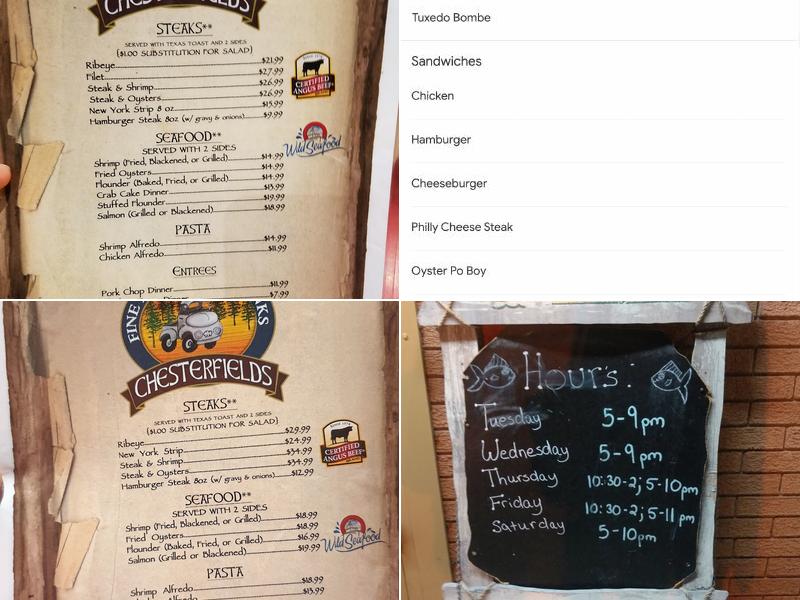 CHESTERFIELDS
STEAKS**
SERVED WITH TEXAS TOAST AND 2 SIDES
($1.00 SUBSTITUTION FOR SALAD)
Ribeye $21.99
Filet $27.99
Steak & Shrimp $26.99
Steak & Oysters $26.99
New York Strip 8 oz $15.99
Hamburger Steak 8oz (w/ gravy & onions) $9.99
CERTIFIED
ANGUS BEEF
SEAFOOD**
SERVED WITH 2 SIDES
Shrimp (Fried, Blackened, or Grilled) $14.99
Fried Oysters $14.99
Flounder (Baked, Fried, or Grilled) $14.99
Crab Cake Dinner $13.99
Stuffed Flounder $19.99
Salmon (Grilled or Blackened) $18.99
Wild Seafood
PASTA
Shrimp Alfredo $14.99
Chicken Alfredo $11.99
ENTREES
Pork Chop Dinner $11.99
Dinner $7.99
Tuxedo Bombe
Sandwiches
Chicken
Hamburger
Cheeseburger
Philly Cheese Steak
Oyster Po Boy
FINE
KS
CHESTERFIELDS
STEAKS**
SERVED WITH TEXAS TOAST AND 2 SIDES
($1.00 SUBSTITUTION FOR SALAD)
Ribeye $29.99
New York Strip $24.99
Steak & Shrimp $34.99
Steak & Oysters $34.99
Hamburger Steak 8oz (w/ gravy & onions) $12.99
CERTIFIED
ANGUS BEEF
SEAFOOD**
SERVED WITH 2 SIDES
Shrimp (Fried, Blackened, or Grilled) $18.99
Fried Oysters $18.99
Flounder (Baked, Fried, or Grilled) $16.99
Salmon (Grilled or Blackened) $19.99
Wild Seafood
PASTA
Shrimp Alfredo $18.99
$13.99
Hours:
Tuesday 5-9pm
Wednesday 5-9pm
Thursday 10:30-2; 5-10pm
Friday 10:30-2; 5-11 pm
Saturday 5-10pm